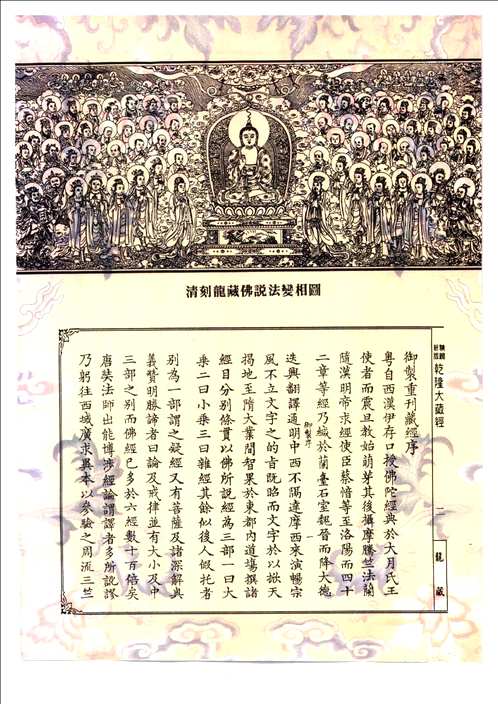 清刻龍藏佛説法變相圖
乾隆大藏經
二
龍藏
御製重刊藏經序
粤自西漢伊存口授佛陀經典於大月氏王
使者而震旦教始萌芽其後攝摩騰竺法蘭
隨漢明帝求經使臣蔡愔等至洛陽而四十
二章等經乃緘於蘭臺石室魏晉而降大德
迭興翻譯通明中西不隔達摩西來演暢宗
風不立文字之旨既昭而文字於以掀天
御製序
一
揭地至隋大業間智果於東都内道場撰諸
經目分别條貫以佛所説經為三部一曰大
乗二曰小乗三曰雜經其餘似後人假托者
别為一部謂之疑經又有菩薩及諸深解奥
義贊明勝諦者曰論及戒律並有大小及中
三部之别而佛經已多於六經數十百倍矣
唐奘法師出能博涉經論謂譯者多所説謬
乃躬往西域廣求異本以參驗之周流三竺